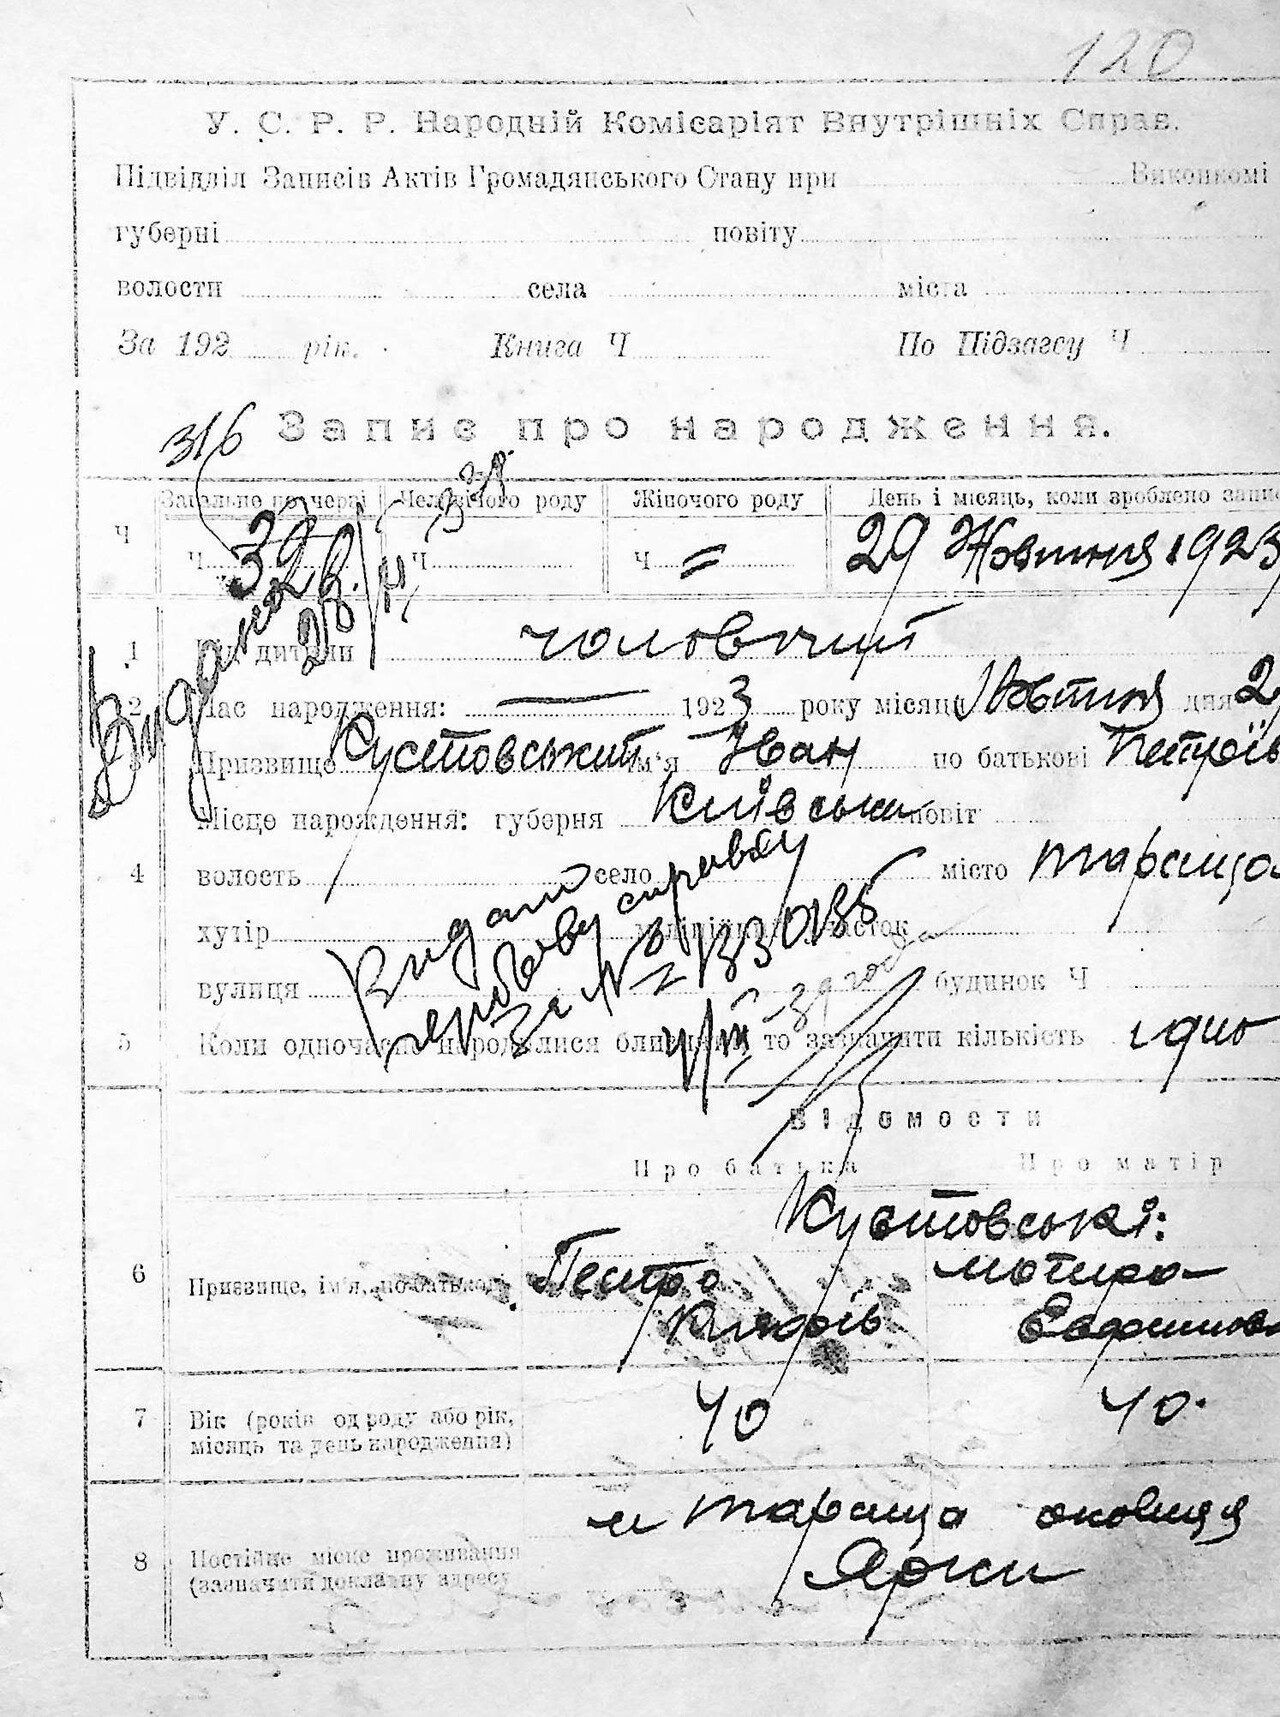 120
У. С. Р. Р. Народній Комісаріят Внутрішніх Справ.
Підвідділ Записів Актів Громадянського Стану при Виконкомі
губерні повіту
волости села міста
За 192 рік. Книга Ч По Підзагсу Ч
316 Запис про народження.
Загальне по черзі Чоловічого роду Жіночого роду День і місяць, коли зроблено запис
Ч Ч Ч Ч 〃 29 Жовтня 1923
1 дитини чоловічий
2 Час народження: — 1923 року місяця Жовтня дня 2
3 Призвище Кустовський ім'я Іван по батькові Петрів
Місце народження: губерня Київська повіт
4 волость село місто Тараща
хутір
вулиця будинок Ч
Видано
гербову справку
за №
39 года
5 Коли одночасно народилися близнята, то зазначити кількість одно
Відомости
Про батька Про матір
Кустовські:
6 Призвище, ім'я, по батькові Петро Мотира
40 40.
7 Вік (років од роду або рік,
місяць та день народження)
м Тараща околиця
8 Постійне місце проживання Ярки
(зазначити докладну адресу